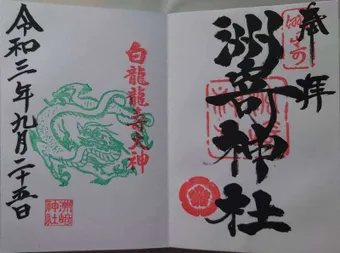 奉拝
洲嵜神社
白龍龍寿大神
令和三年九月二十五日
洲崎
神社